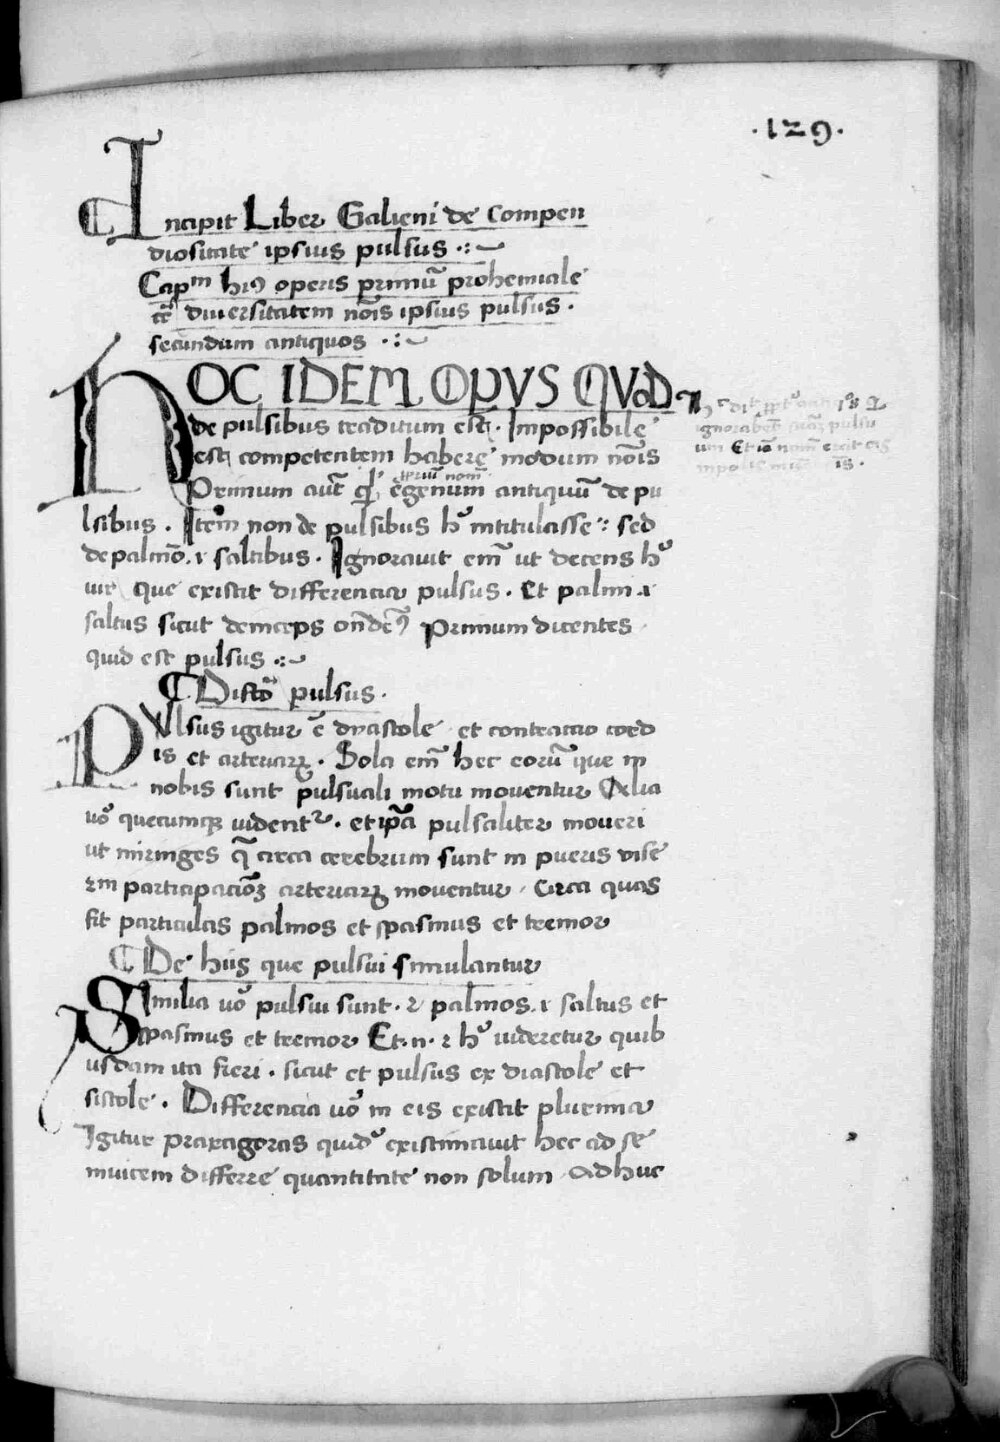 .129.
Incipit Liber Galieni de compen
diositate ipsius pulsus .:~
Capm hi9 operis primū prohemiale
cā diuersitatem nōis ipsius pulsus.
secundum antiquos .:~
HOC IDEM OPVS QVOD
de pulsibus traditum est. Impossibile
est competentem habere modum nōis
Primum aut̄ egenum antiquū de pu
lsibus. Item non de pulsibus h° intitulasse: sed
de palmo. ⁊ saltibus. Ignorauit em̄ ut decens h°
uir que existit differencia pulsus. Et palmi ⁊
saltus sicut deinceps ondem9 Primum dicentes
quid est pulsus .:~
¶ Disctō pulsus.
PVlsus igitur ē dyastole et contractio cord
is et arteriaꝝ. Sola em̄ hec eorū que in
nobis sunt pulsuali motu mouentur Alia
uo° quecumqꝫ uident᷑. et ip̄a pulsaliter moueri
ut miringes q̄ circa cerebrum sunt in pueris
participacioꝫ arteriaꝝ mouentur. Circa quas
fit particulas palmos et spasmus et tremor
¶ De hiis que pulsui simulantur
Similia uo° pulsui sunt. ⁊ palmos. ⁊ saltus et
spasmus et tremor Et. n. ⁊ h° uideretur quib
usdam ita fieri. sicut et pulsus ex diastole et
sistole. Differencia uo° in eis existit plurima
Igitur praxagoras quid° existimauit hec ad se
inuicem differre quantitate non solum. Adhuc